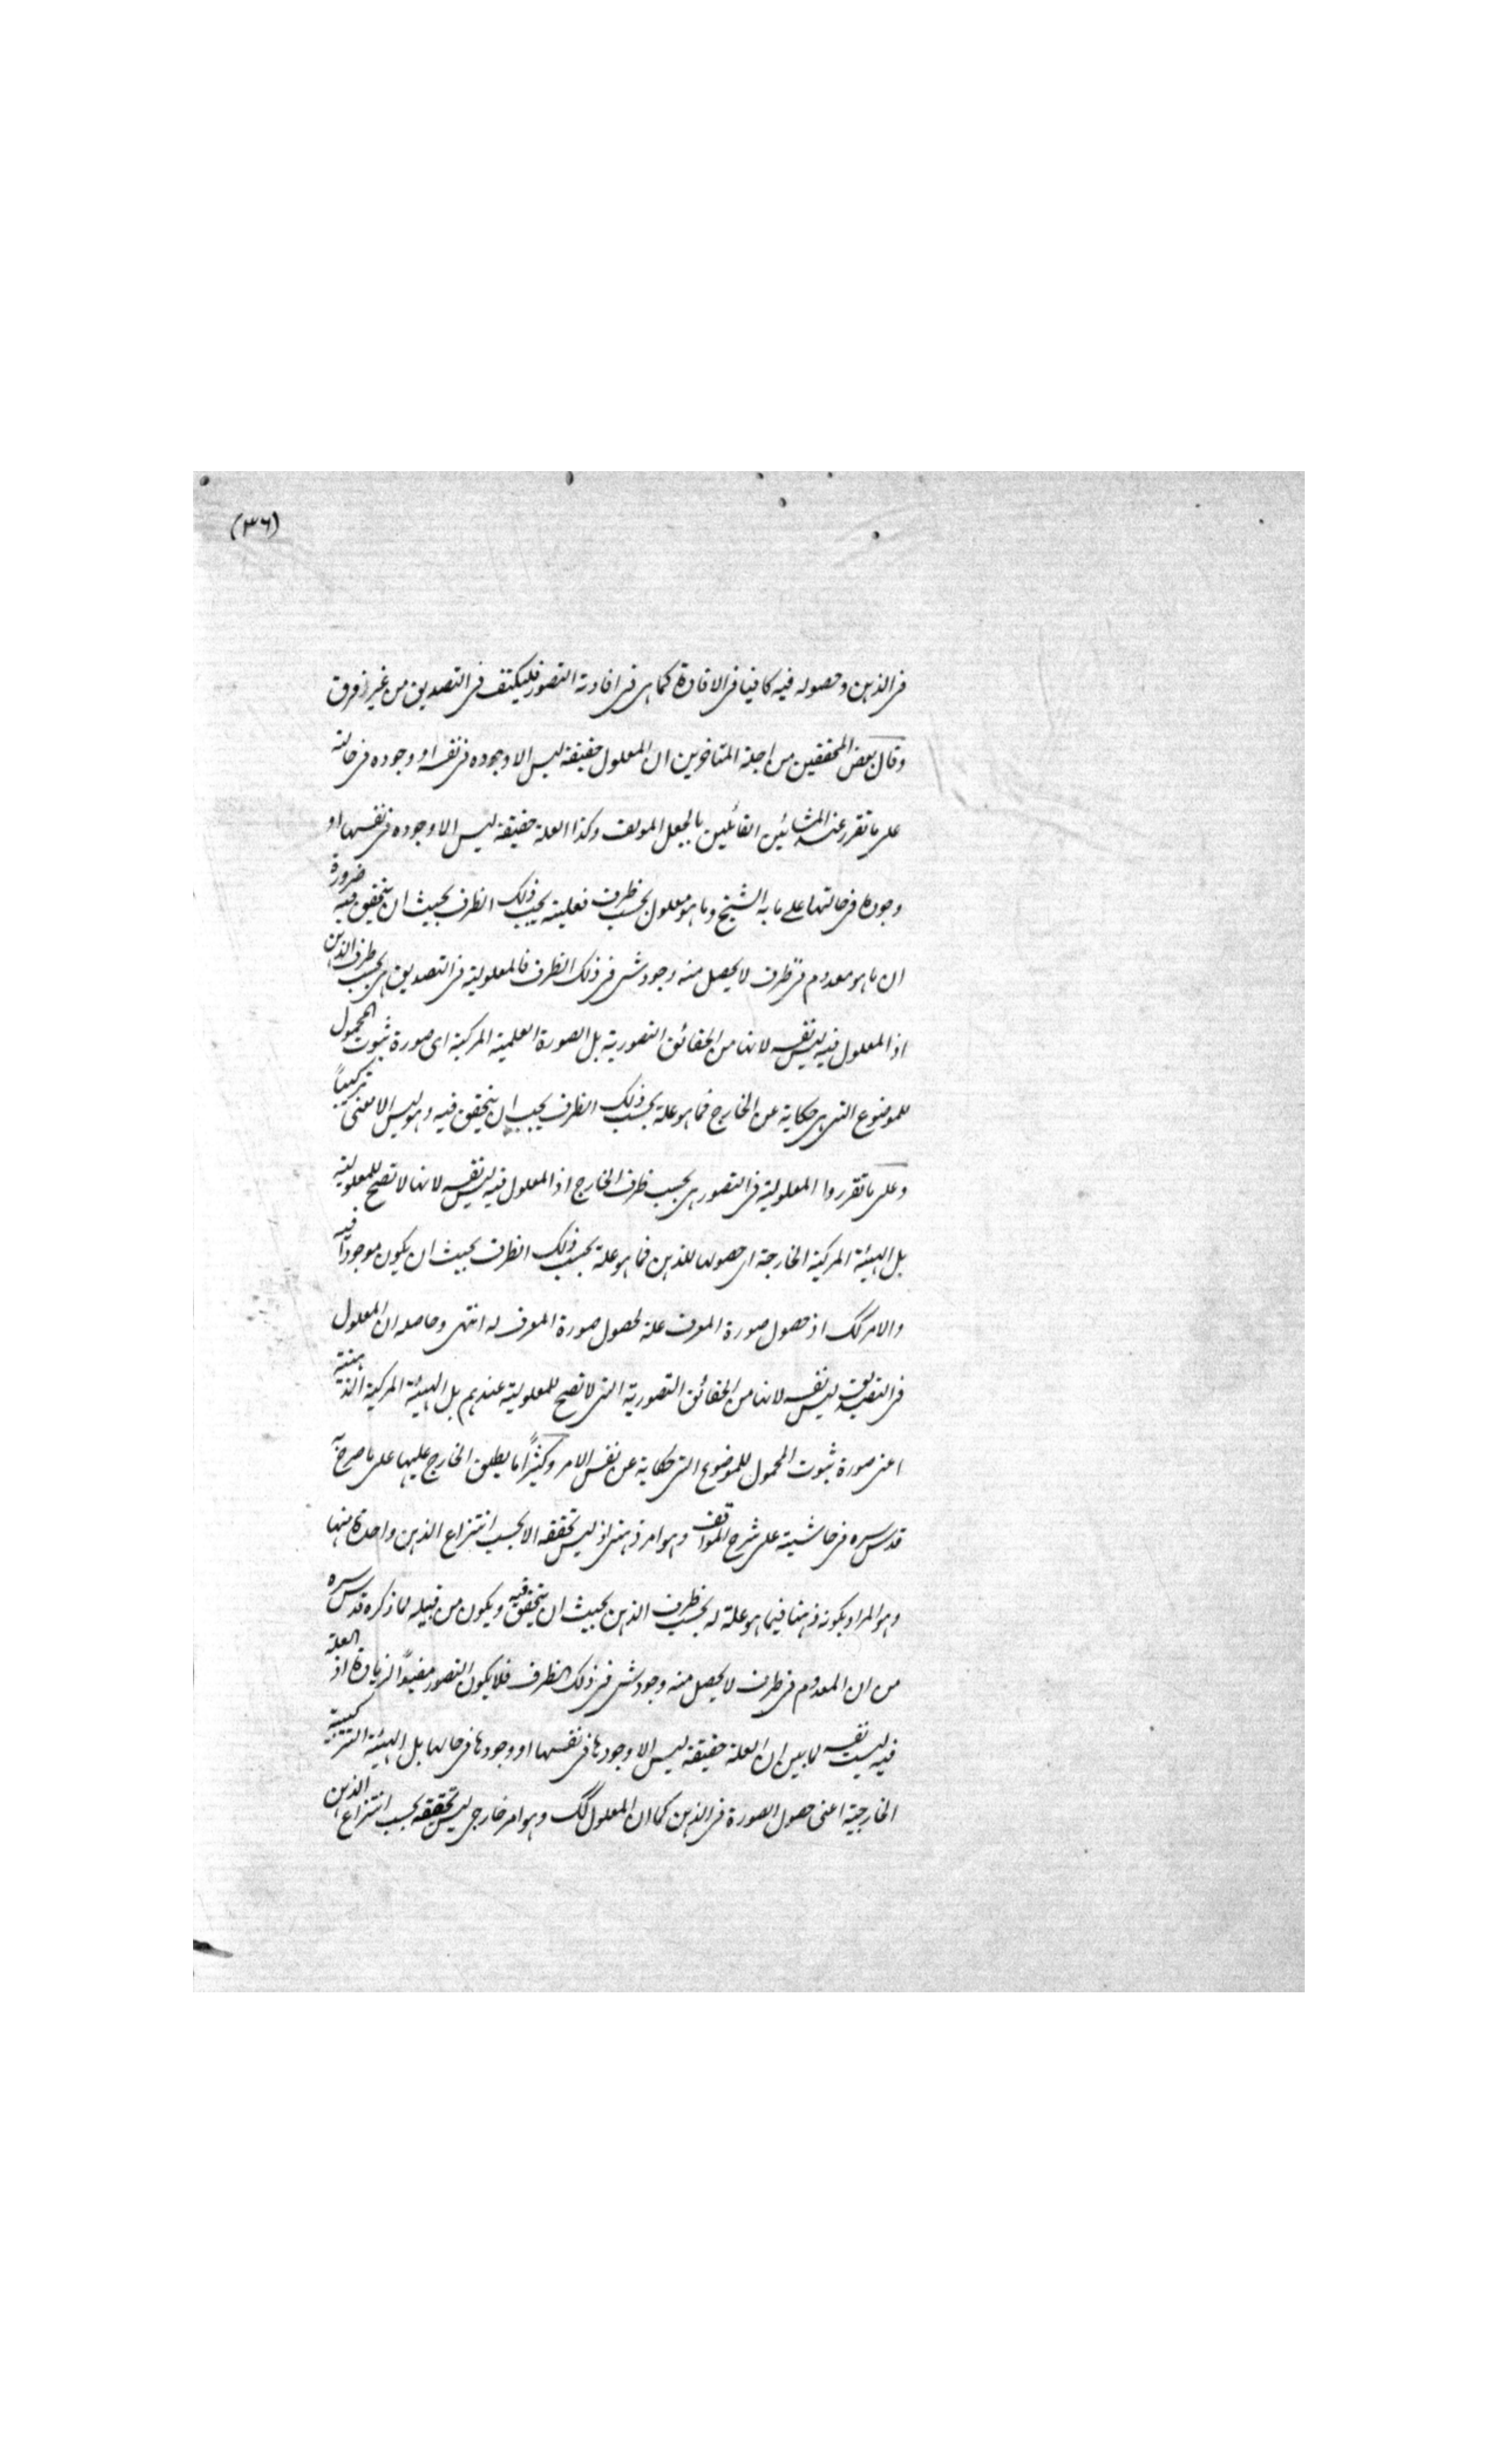 (٣٦)
في الذهن وحصوله فيه كافيا في الافادة كما هي في افادته التصور فليكتف في التصديق من غير فرق
وقال بعض المحققين من اجلة المتاخرين ان المعلول حقيقة ليس الا وجوده في نفسه او وجوده في حالته
على ما تقرر عند المشائين القائلين بالجعل المولف وكذا العلة حقيقة ليس الا وجوده في نفسها او
وجودها في حالتها على ما به الشيخ وما هو معلول بحسب ظرف فعليته يجب ذلك الظرف بحيث ان يتحقق فيه ضرورة
ان ما هو معدوم في ظرف لا يحصل منه وجود شي في ذلك الظرف فالمعلولية في التصديق هي بحسب ظرف الذهن
اذ المعلول فيه ليس نفسه لانها من الحقائق التصورية بل الصورة العلمية المركبة اى صورة ثبوت المحمول
للموضوع التي هي حكاية عن الخارج فما هو علة بحسب ذلك الظرف يجب ان يتحقق فيه وهو ليس الا معنى تركيبياً
وعلى ما تقرروا المعلولية في التصور هي بحسب ظرف الخارج اذ المعلول فيه ليس نفسه لانها لا تصح للمعلولية
بل الهيئة المركبة الخارجة اى حصولها للذهن فما هو علة بحسب ذلك الظرف بحيث ان يكون موجوداً فيه
والامر كك اذ حصول صورة المعرف علة لحصول صورة المعرف له انتهى وحاصله ان المعلول
في التصديق ليس نفسه لانها من الحقائق التصورية التي لا تصح للمعلولية عندهم بل الهيئة المركبة الذهنية
اعنى صورة ثبوت المحمول للموضوع التي حكاية عن نفس الامر وكثيراً ما يطلق الخارج عليها على ما صرح به
قدس سره في حاشيته على شرح المواقف وهو امر ذهني اذ ليس تحققه الا بحسب انتزاع الذهن واحدة منها
وهو المراد بكونه ذهنيا فيما هو علة له بحسب ظرف الذهن بحيث ان يتحقق فيه ويكون من قبيله لما ذكره قدس سره
من ان المعدوم في ظرف لا يحصل منه وجود شي في ذلك الظرف فلا يكون التصور مفيداً لزيادة اذ العلة
فيه ليست نفسه لما بين ان العلة حقيقة ليس الا وجودها في نفسها او وجودها في حالها بل الهيئة التركيبية
الخارجية اعنى حصول الصورة في الذهن كما ان المعلول كك وهو امر خارجي ليس تحققه بحسب انتزاع الذهن